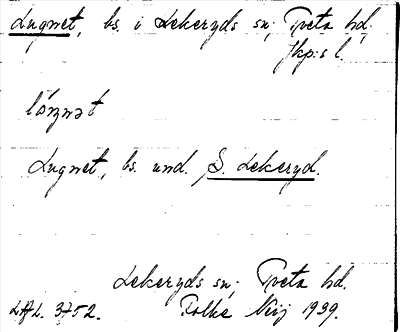 Lugnet, bs. i Lekeryds sn; Tveta hd;
Jkp:s l.
Lugnet, bs. und. S. Lekeryd.
Lekeryds sn; Tveta hd.
LAL. 3752. Folke Nirj 1939.